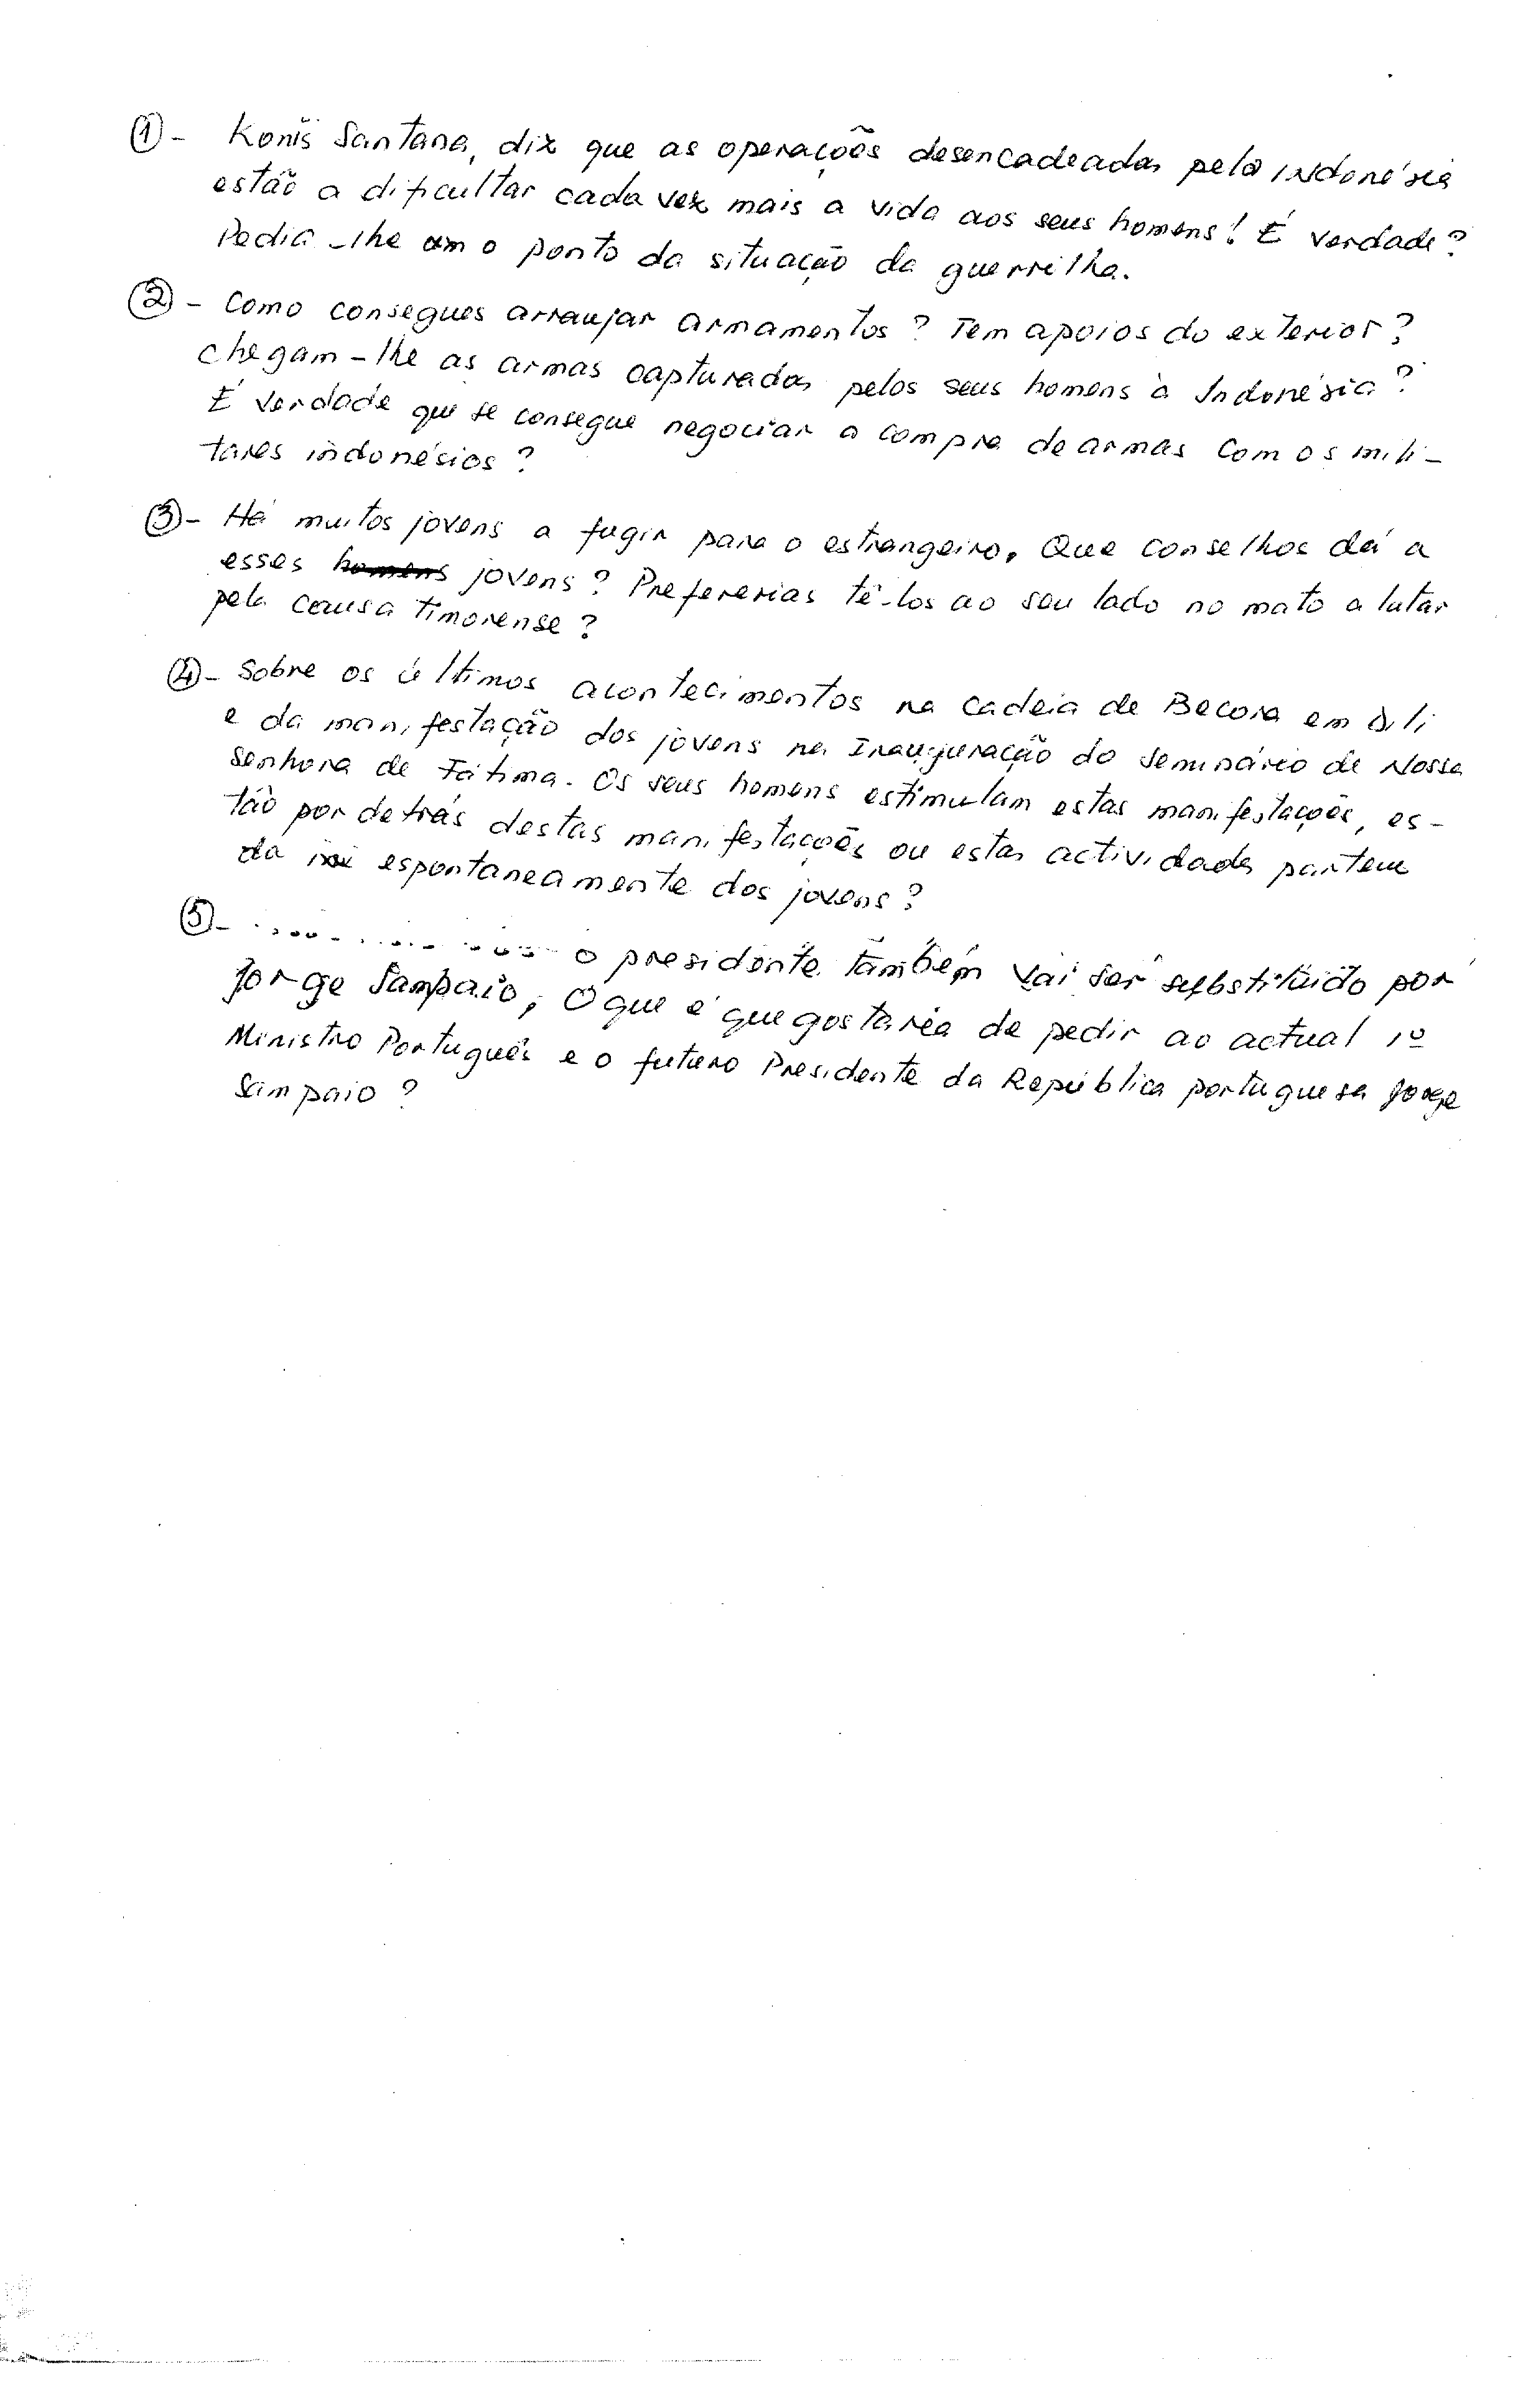 ① - Konis Santana, diz que as operações desencadeadas pela INdonésia
estão a dificultar cada vez mais a vida aos seus homens! É verdade?
Pedia-lhe um o ponto da situação da guerrilha.
② - Como consegues arranjar armamentos? Tem apoios do exterior?
chegam-lhe as armas capturadas pelos seus homens à Indonésia?
É verdade que se consegue negociar a compra de armas com os mili-
tares indonésios?
③ - Há muitos jovens a fugir para o estrangeiro. Que conselhos dá a
esses homens jovens? Prefererias tê-los ao seu lado no mato a lutar
pela causa timorense?
④ - Sobre os últimos acontecimentos na cadeia de Becora em Díli
e da manifestação dos jovens na Inauguração do Seminário de Nossa
Senhora de Fátima. Os seus homens estimulam estas manifestações, es-
tão por detrás destas manifestações ou estas actividades partem
da espontaneamente dos jovens?
⑤ - .................... o presidente também vai ser substituído por
Jorge Sampaio, O que é que gostaria de pedir ao actual 1º
Ministro Português e o futuro Presidente da República portuguesa Jorge
Sampaio?